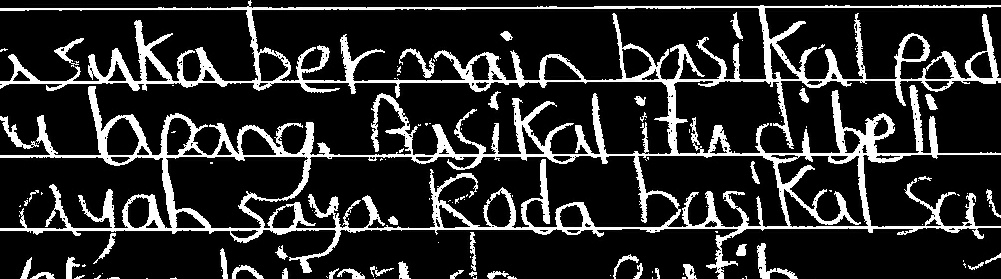 a suka bermain basikal pad
u lapang. Basikal itu dibeli
ayah saya. Roda basikal say
hijau putih